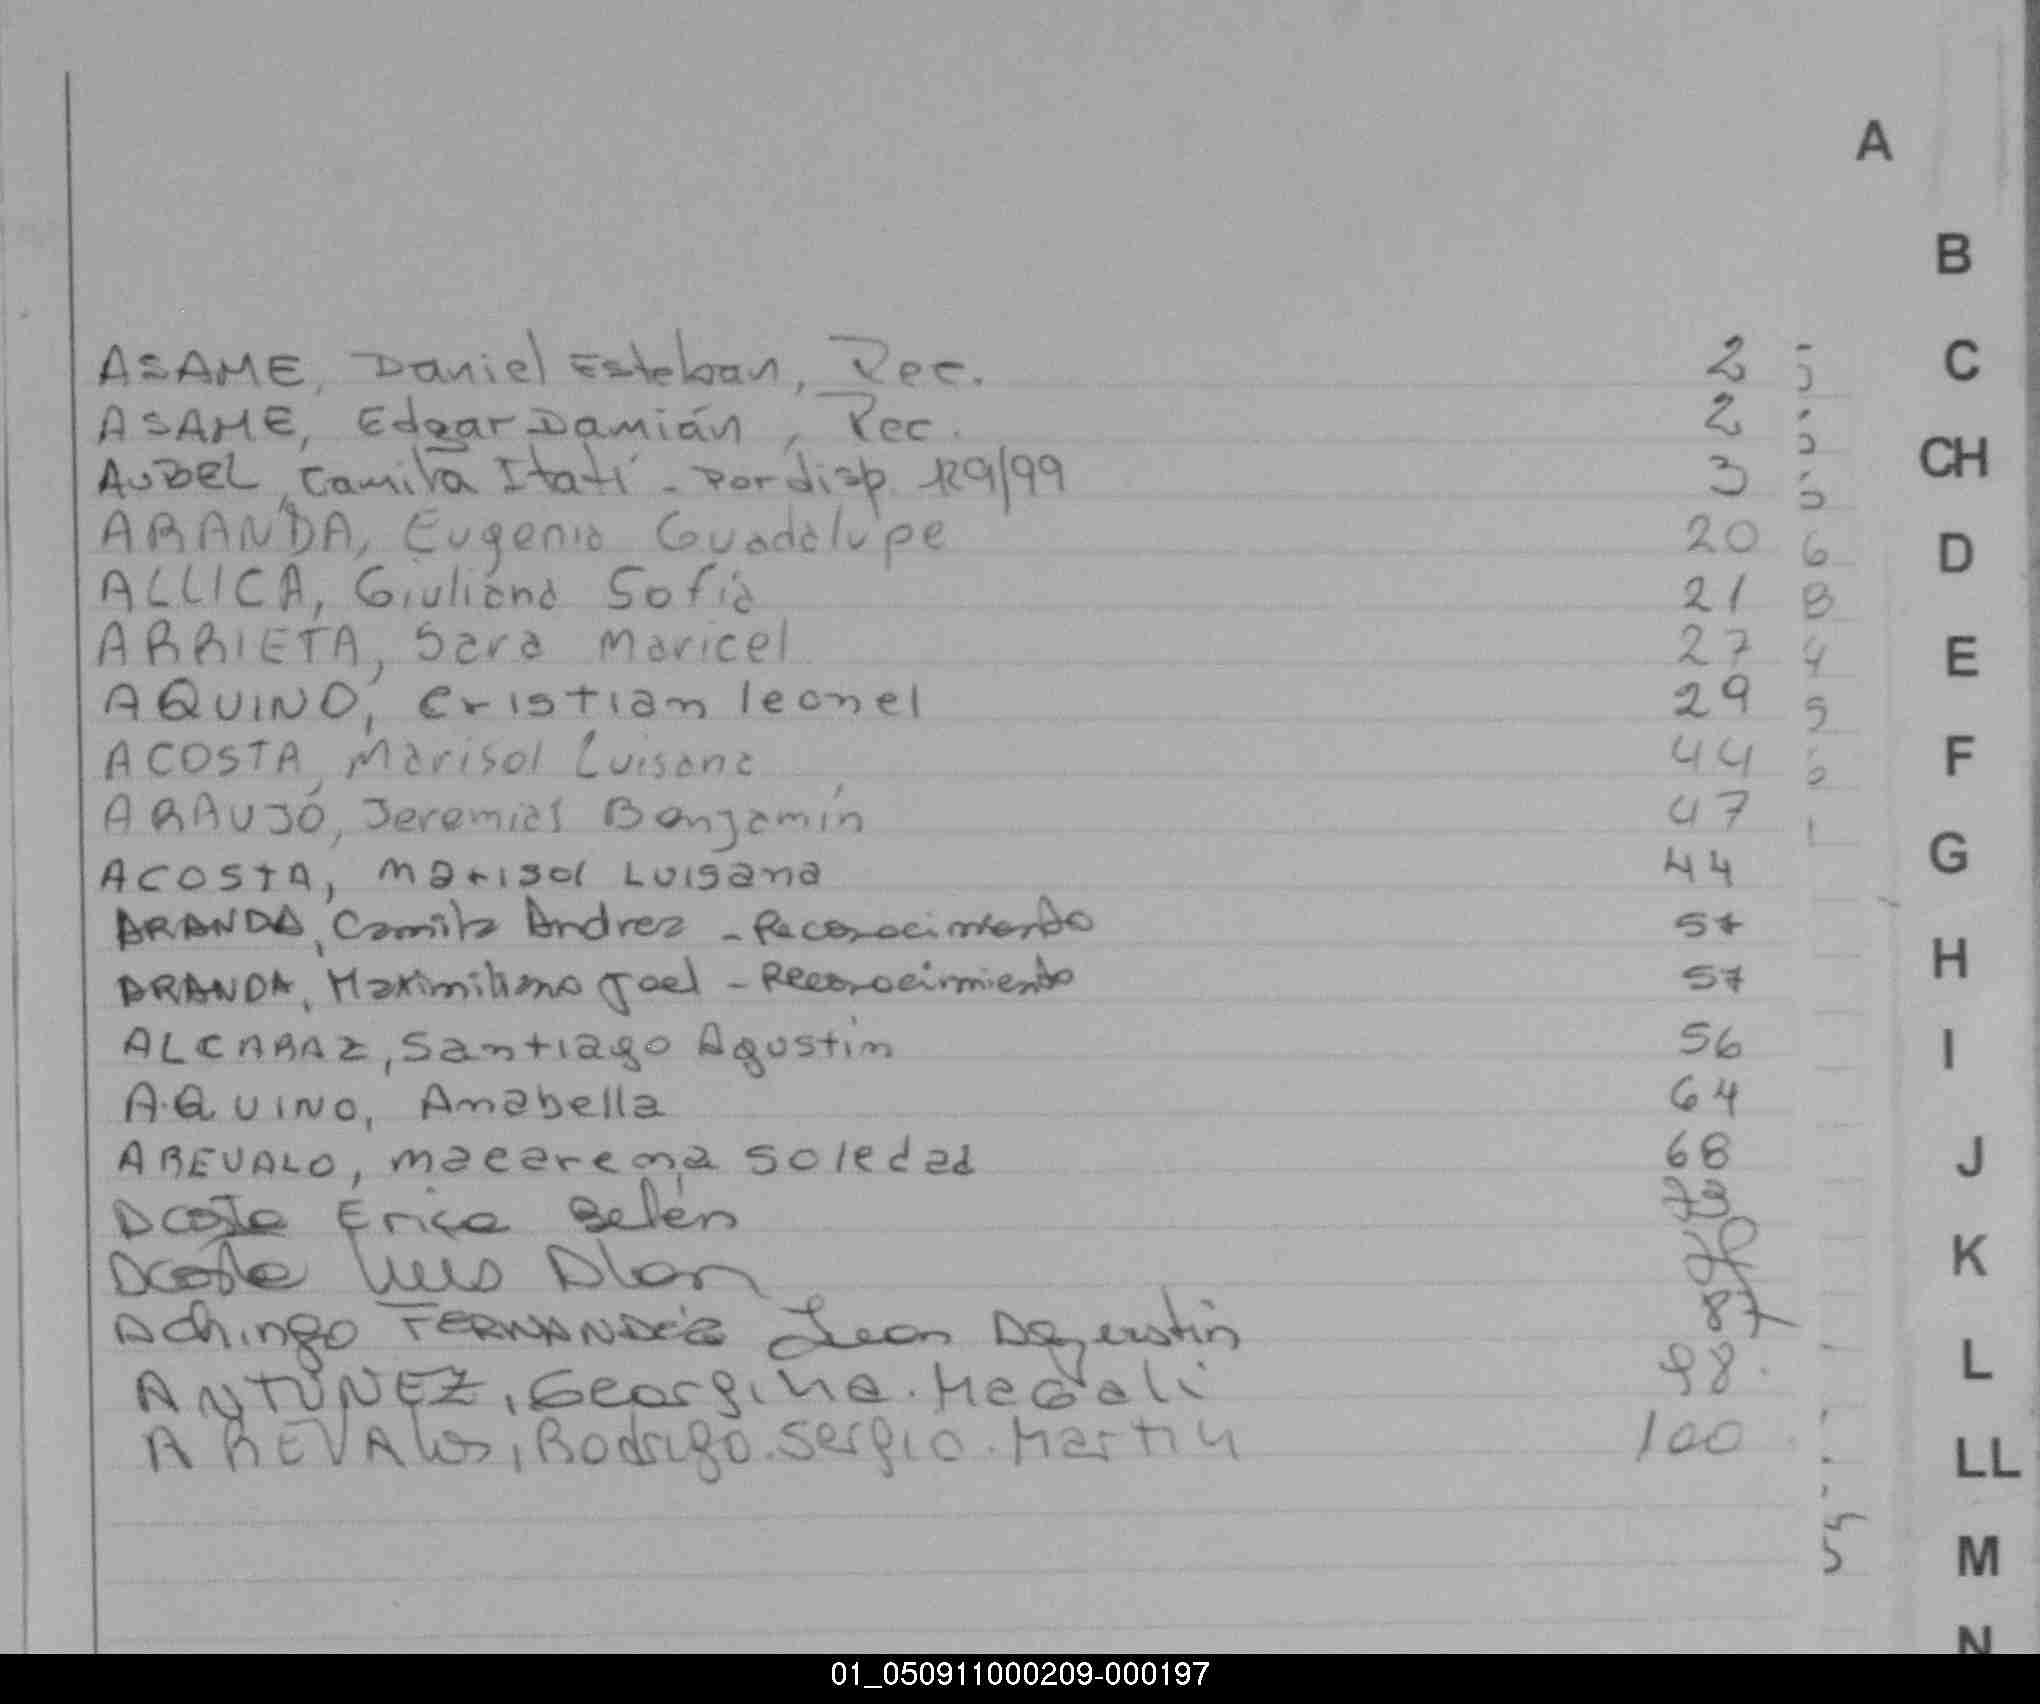 A
B
C
CH
D
E
F
G
H
I
J
K
L
LL
M
N
ASAME, Daniel Esteban, Rec. 2
ASAME, Edgar Damián, Rec. 2
AUBEL, Camila Itatí - Por disp. 129/99 3
ARANDA, Eugenia Guadalupe 20 6
ALLICA, Giuliana Sofía 21 8
ARRIETA, Sara Maricel 27 4
AQUINO, Cristian leonel 29 5
ACOSTA, Marisol Luisana 44
ARAUJO, Jeremias Benjamín 47
ACOSTA, Marisol Luisana 44
ARANDA, Camila Andrea - Reconocimiento 57
ARANDA, Maximiliano Joel - Reconocimiento 57
ALCARAZ, Santiago Agustin 56
AQUINO, Anabella 64
AREVALO, macarena soledad 68
Acosta Erica Belén
Acosta Luis Alan
Achingo FERNANDEZ Leon Agustin 87
ANTUNEZ, Georgina. Magali 98.
AREVALOS, Rodrigo. Sergio. Martin 100
5
01_050911000209-000197